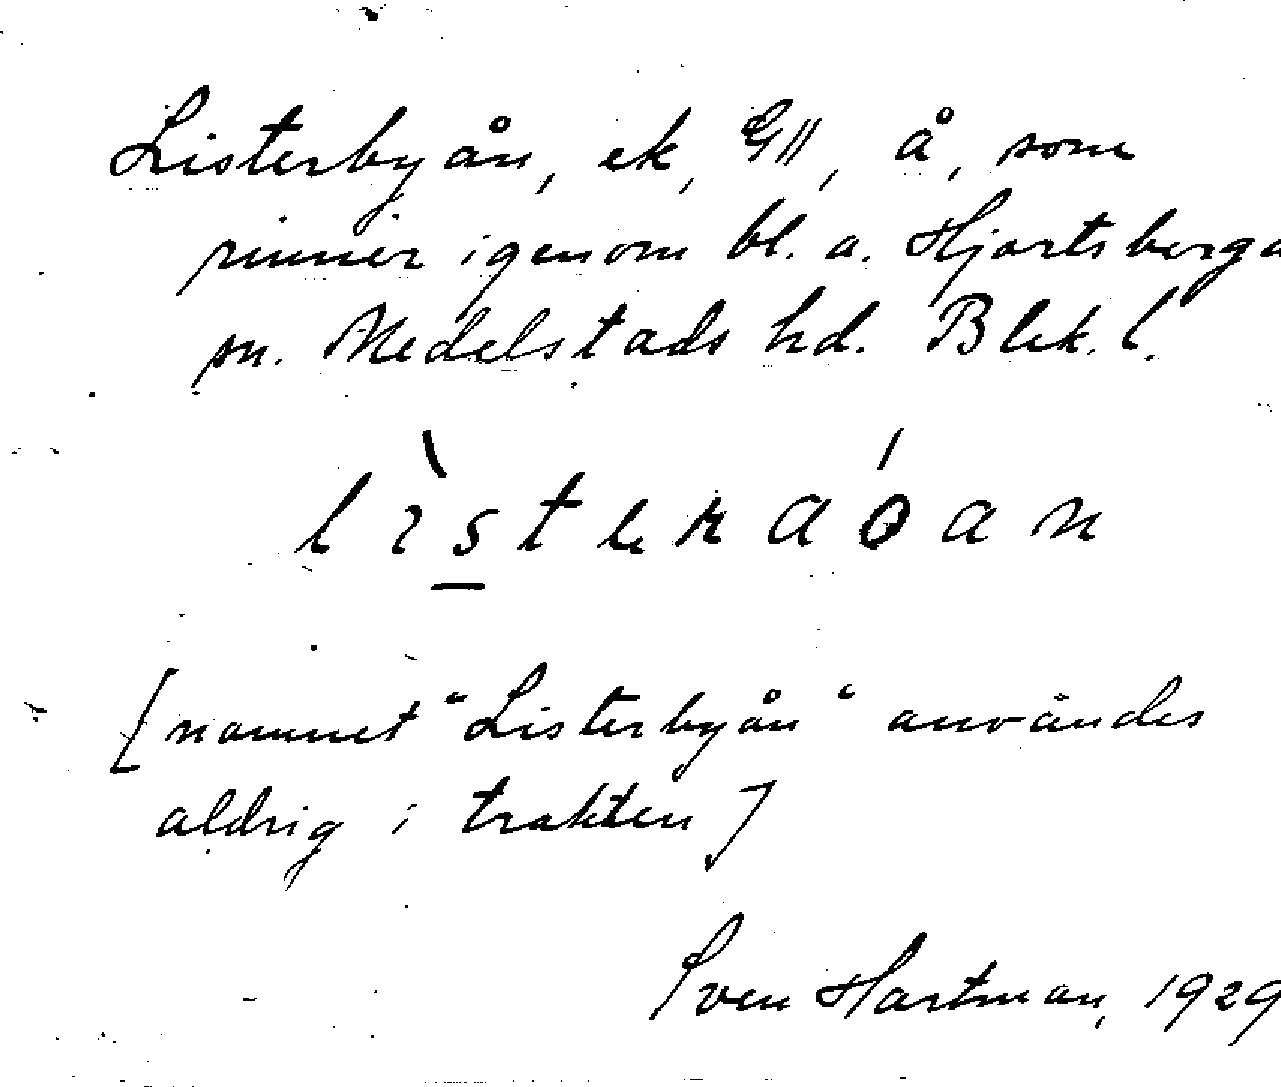 Listerbyån, ek, GII, å, som
rinner igenom bl. a. Hjortsberga
sn. Medelstads hd. Blek. l.
[namnet "Listerbyån" användes
aldrig i trakten]
Sven Hartman, 1929